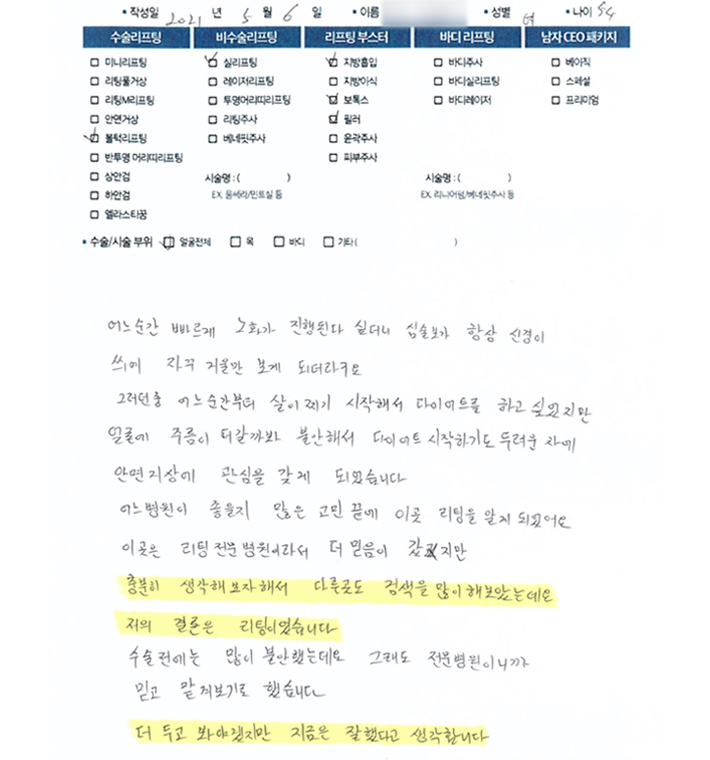 • 작성일 2021 년 5 월 6 일 • 이름 • 성별 여 • 나이 54
수술리프팅 비수술리프팅 리프팅 부스터 바디 리프팅 남자 CEO 패키지
미니리프팅 실리프팅 지방흡입 바디주사 베이직
리팅풀거상 레이저리프팅 지방이식 바디실리프팅 스페셜
리팅M리프팅 투명머리띠리프팅 보톡스 바디레이저 프리미엄
안면거상 리팅주사 필러
볼턱리프팅 베네핏주사 윤곽주사
반투명 머리띠리프팅 피부주사
상안검 시술명 : ( ) 시술명 : ( )
하안검 EX. 울쎄라/민트실 등 EX. 리니어펌/베네핏주사 등
엘라스티꿈
• 수술/시술 부위 얼굴전체 목 바디 기타 ( )
어느순간 빠르게 노화가 진행된다 싶더니 심술보가 항상 신경이
쓰여 자꾸 거울만 보게 되더라구요
그러던중 어느순간부터 살이찌기 시작해서 다이어트를 하고 싶었지만
얼굴에 주름이 더갈까봐 불안해서 다이어트 시작하기도 두려운 차에
안면거상에 관심을 갖게 되었습니다
어느병원이 좋을지 많은 고민 끝에 이곳 리팅을 알게 되었어요
이곳은 리팅전문병원이라서 더 믿음이 지만
충분히 생각해보자해서 다른곳도 검색을 많이해보았는데요
저의 결론은 리팅이었습니다
수술전에는 많이 불안했는데요 그래도 전문병원이니까
믿고 맡겨보기로 했습니다
더 두고 봐야겠지만 지금은 잘했다고 생각합니다